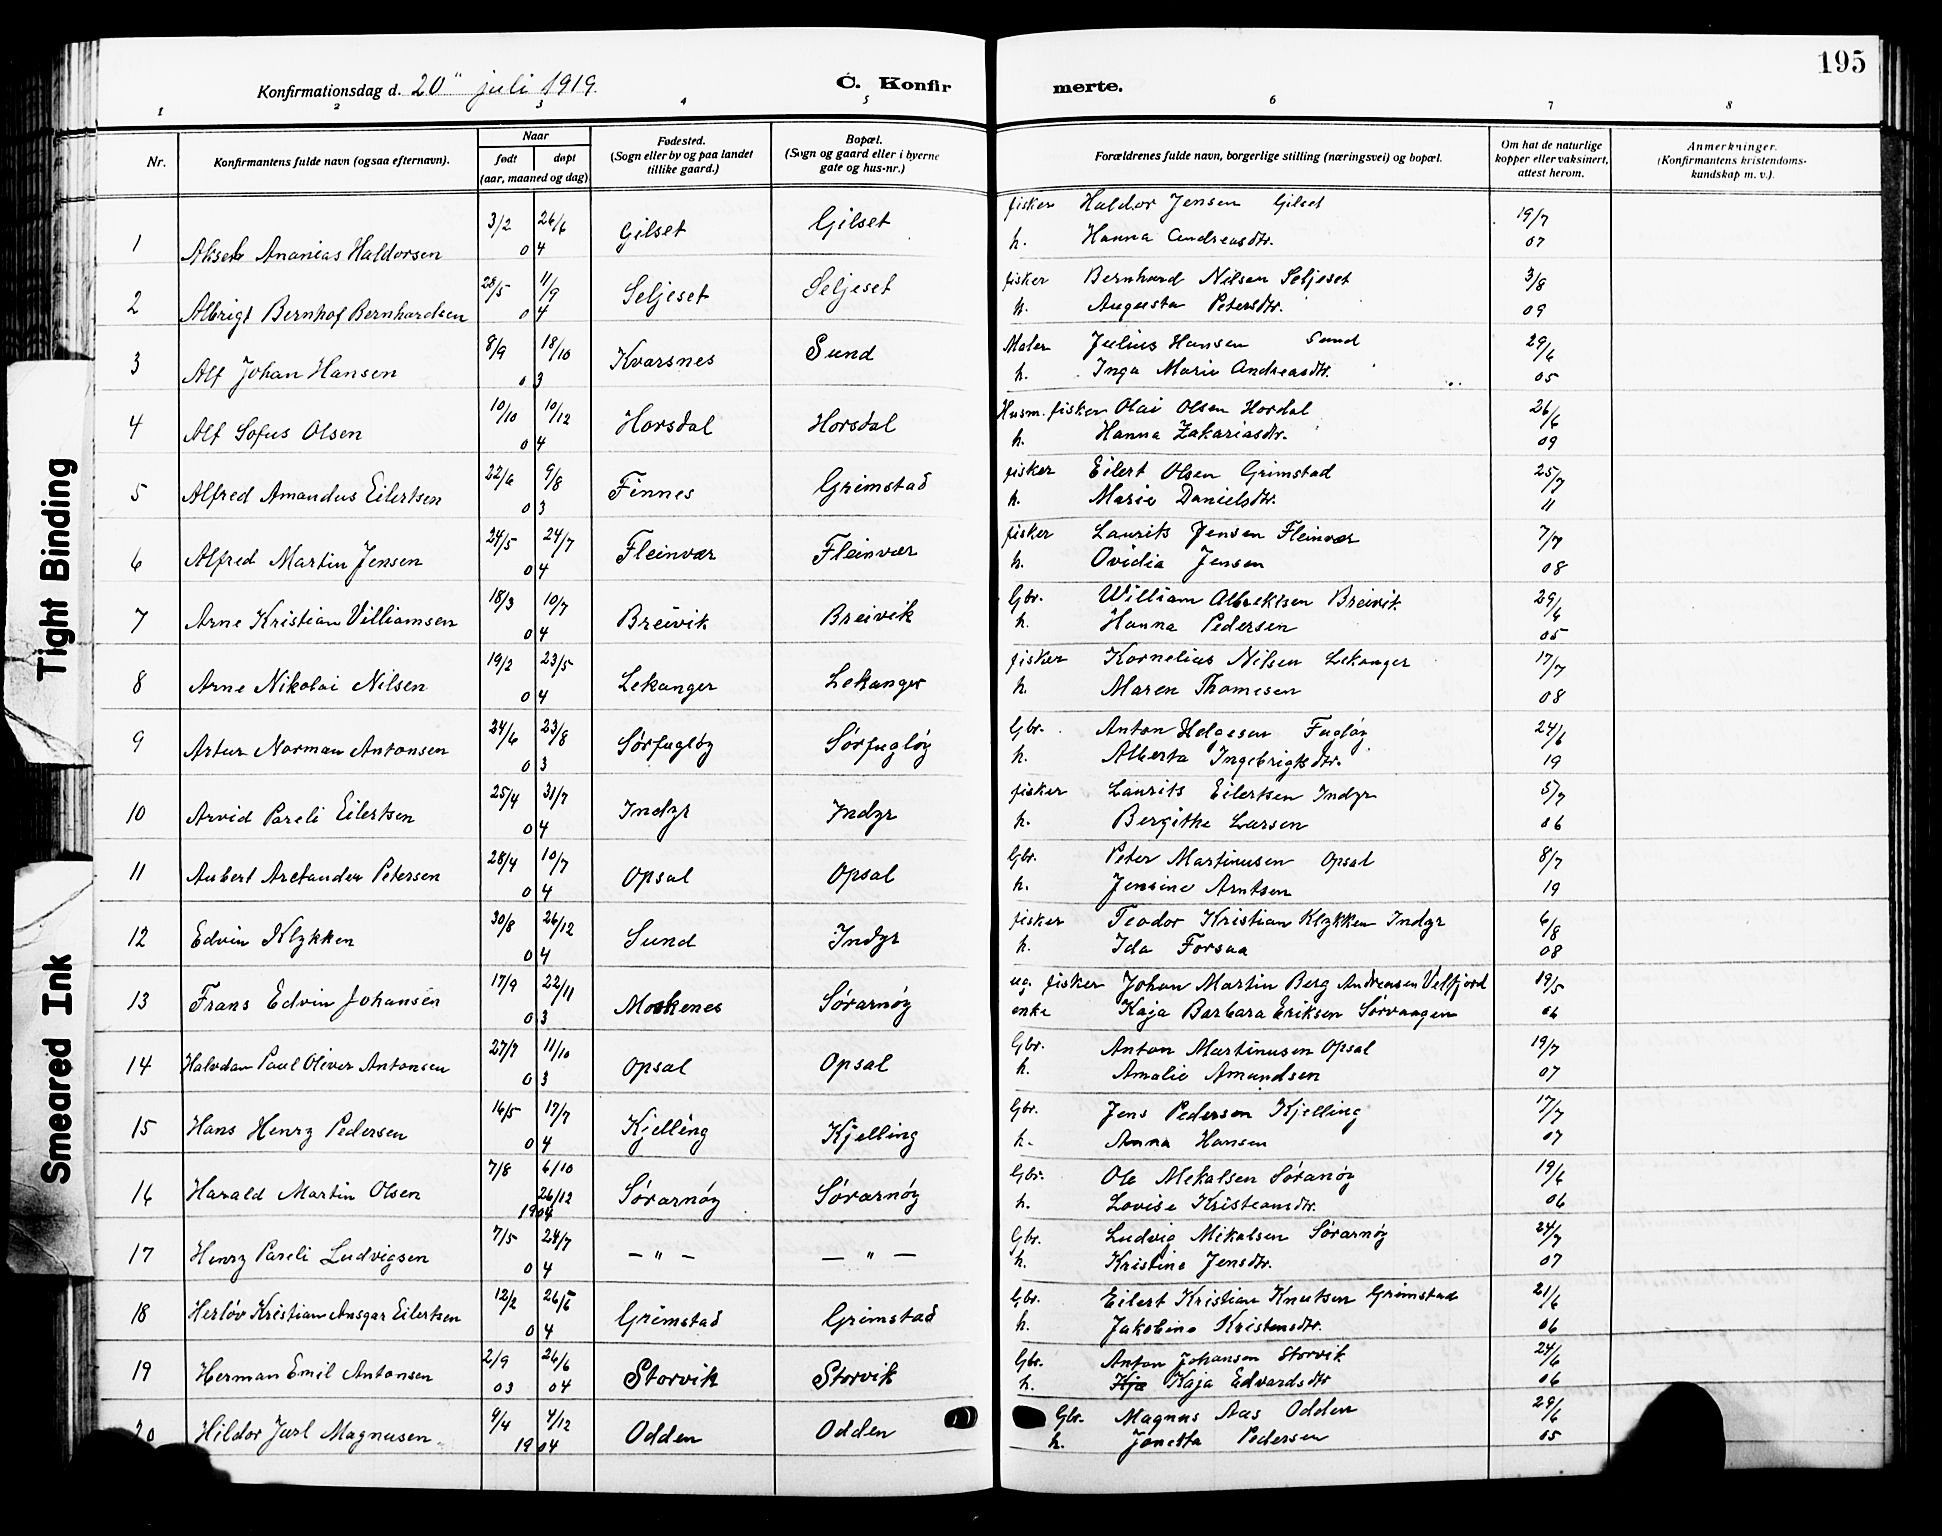 195
Konfirmationsdag d. 20" juli 1919.
C. Konfirmerte.
1 2 3 4 5 6 7 8
Nr.
Konfirmantens fulde navn (ogsaa efternavn).
Naar
født
døpt
(aar, maaned og dag)
Fødested.
(Sogn eller by og paa landet
tillike gaard.)
Bopæl.
(Sogn og gaard eller i byerne
gate og hus-nr.)
Forældrenes fulde navn, borgerlige stilling (næringsvei) og bopæl.
Om hat de naturlige
kopper eller vaksinert,
attest herom.
Anmerkninger.
(Konfirmantens kristendoms-
kundskap m. v.).
1 Aksel Ananias Haldorsen 3/2 26/6 04 Gilset Gilset fisker Haldor Jensen Gilset 19/7
h. Hanna Andreasdtr. 07
2 Albrigt Bernhof Bernhardsen 28/5 11/9 04 Seljeset Seljeset fisker Bernhard Nilsen Seljeset 3/8
h. Augusta Petersdtr. 09
3 Alf Johan Hansen 8/9 18/10 03 Kvarsnes Sund Maler Julius Hansen Sund 29/6
h. Inga Marie Andreasdtr. 05
4 Alf Sofus Olsen 10/10 10/12 04 Horsdal Horsdal Husm. fisker Olai Olsen Hordal 26/6
h. Hanna Zakariasdtr. 09
5 Alfred Amandus Eilertsen 22/6 9/8 03 Finnes Grimstad fisker Eilert Olsen Grimstad 25/7
h. Marie Danielsdtr. 11
6 Alfred Martin Jensen 24/5 24/7 04 Fleinvær Fleinvær fisker Laurits Jensen Fleinvær 7/7
h. Ovidia Jensen 08
7 Arne Kristian Villiamsen 18/3 10/7 04 Breivik Breivik Gbr. William Albrektsen Breivik 29/6
h. Hanna Pedersen 05
8 Arne Nikolai Nilsen 19/2 23/5 04 Lekanger Lekanger fisker Kornelius Nilsen Lekanger 17/7
h. Maren Thomesen 08
9 Artur Norman Antonsen 24/6 23/8 03 Sørfugløy Sørfugløy Gbr. Anton Helgesen Fugløy 24/6
h. Alberta Ingebrigtsdtr. 19
10 Arvid Pareli Eilertsen 25/4 31/7 04 Indyr Indyr fisker Laurits Eilertsen Indyr 5/7
h. Bergithe Larsen 06
11 Aubert Arctander Petersen 28/4 10/7 04 Opsal Opsal Gbr. Peter Martinusen Opsal 8/7
h. Jensine Arntsen 19
12 Edvin Klykken 30/8 26/12 04 Sund Indyr fisker Teodor Kristian Klykken Indyr 6/8
h. Ida Forsaa 08
13 Frans Edvin Johansen 17/9 22/11 03 Moskenes Sørarnøy ug. fisker Johan Martin Berg Andreasen Velfjord 19/5
enke Kaja Barbara Eriksen Sørvaagen 06
14 Halvdan Paul Oliver Antonsen 27/7 11/10 03 Opsal Opsal Gbr. Anton Martinusen Opsal 19/7
h. Amalie Amundsen 07
15 Hans Henry Pedersen 16/5 17/7 04 Kjelling Kjelling Gbr. Jens Pedersen Kjelling 17/7
h. Anna Hansen 07
16 Harald Martin Olsen 7/8 6/10 26/12 1904 Sørarnøy Sørarnøy Gbr. Ole Mekalsen Søranøy 19/6
h. Lovise Kristiansdtr. 06
17 Henry Pareli Ludvigsen 7/5 24/7 04 — " — — " — Gbr. Ludvig Mikalsen Sørarnøy 24/7
h. Kristine Jensdtr. 07
18 Herløv Kristian Ansgar Eilertsen 12/2 26/6 04 Grimstad Grimstad Gbr. Eilert Kristian Knutsen Grimstad 21/6
h. Jakobine Kristensdtr. 06
19 Herman Emil Antonsen 2/9 26/6 03 04 Storvik Storvik Gbr. Anton Johansen Storvik 24/6
h. Kja Kaja Edvardsdtr 06
20 Hildor Jarl Magnusen 9/4 4/12 1904 Odden Odden Gbr. Magnus Aas Odden 29/6
h. Jonetta Pedersen 05
Tight Binding
Smeared Ink